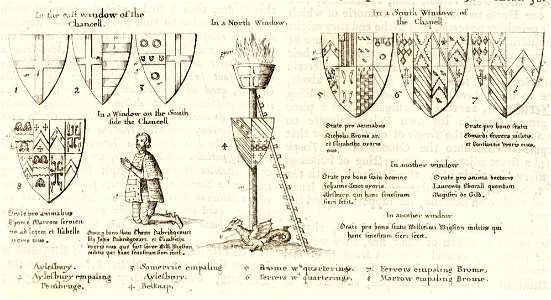 In the east window of the
Chancell.
In a North Window.
In a South Window of
the Chapell
1
2
3
4
5
6
7
8
In a Window on the South
side the Chancell
Orate pro animabus
Nicholai Brome ar.
et Elizabethe uxoris
Orate pro bono statu
Edwardi Ferrers militis
et Constantie uxoris eius.
In another window
Orate pro bono statu domine
Johanne uxoris
qui hanc fenestram
fieri fecit.
Orate pro anima doctoris
Laurentii quondam
Magistri de
In another window
Orate pro bono statu Willielmi Wigston militis qui
hanc fenestram fieri fecit.
Orate pro animabus
Thome Marrow servien-
tis ad legem et Isabelle
uxoris eius
Orate pro bono statu
filii Johis et Elizabethe
uxoris
militis qui hanc fenestram fieri fecit.
1 Aylesbury.
2 Aylesbury empaling
Pembruge.
3 Somervile empaling
Aylesbury.
4 Belknap.
5 Brome wth quarterings.
6 Ferrers wth quarterings.
7 Ferrers empaling Brome.
8 Marrow empaling Brome.